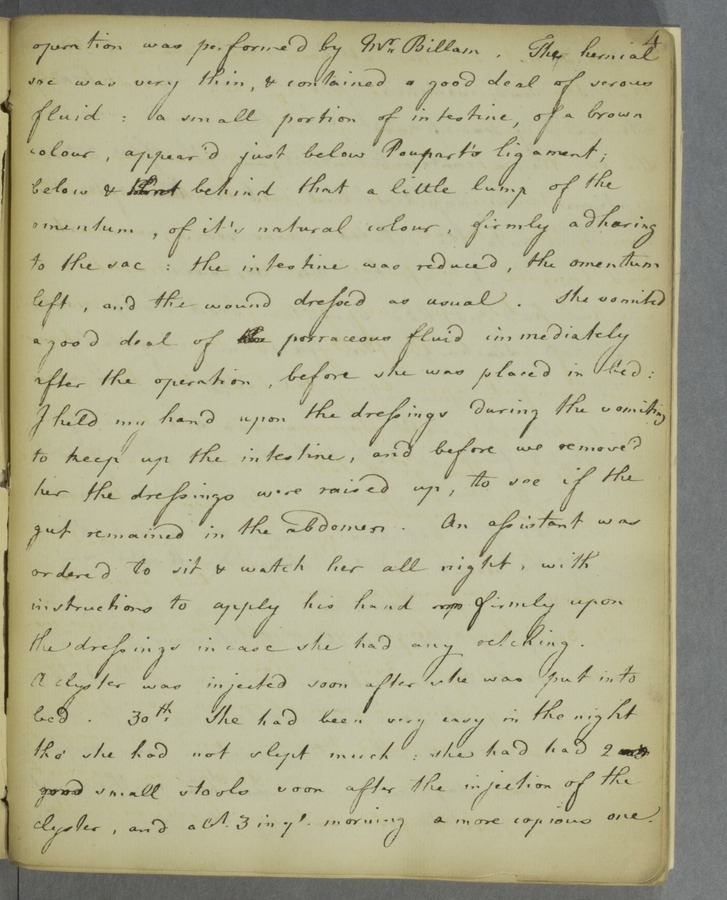 4
operation was performed by Mr. Billam. The hernial
sac was very thin, & contained a good deal of serous
fluid : a small portion of intestine, of a brown
colour, appear'd just below Poupart's ligament;
below & behind that a little lump of the
omentum, of it's natural colour, firmly adhering
to the sac : the intestine was reduced, the omentum
left, and the wound dressed as usual. She vomited
a good deal of porraceous fluid immediately
after the operation, before she was placed in bed :
I held my hand upon the dressings during the vomiting
to keep up the intestine, and before we remove'd
her the dressings were raised up, to see if the
gut remained in the abdomen. An assistant was
order'd to sit & watch her all night, with
instructions to apply his hand firmly upon
the dressings in case she had any retching.
A clyster was injected soon after she was put into
bed. 30th. She had been very easy in the night
tho' she had not slept much : she had had 2
small stools soon after the injection of the
clyster, and abt. 3 in ye. morning a more copious one.